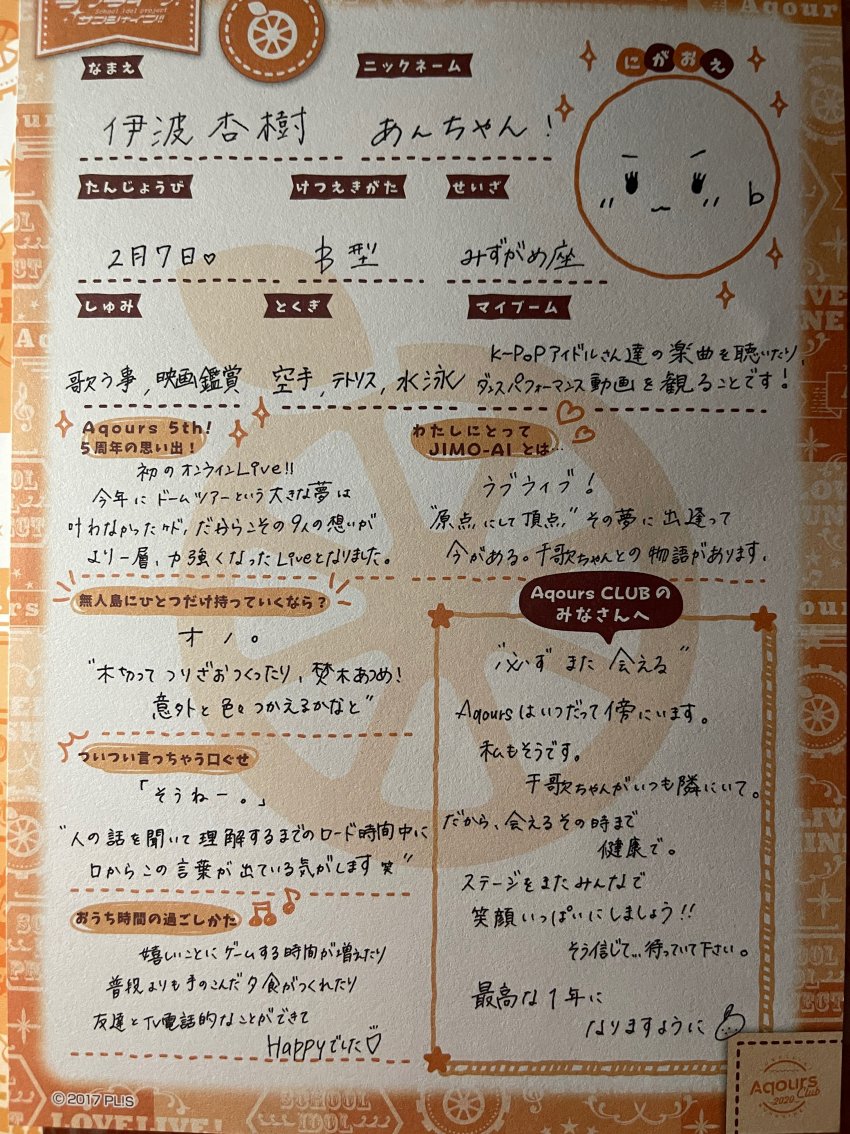 ラブライブ!
School idol project
サンシャイン!!
なまえ
ニックネーム
にがおえ
伊波杏樹
あんちゃん!
たんじょうび
けつえきがた
せいざ
2月7日♡
B型
みずがめ座
しゅみ
とくぎ
マイブーム
歌う事,映画鑑賞
空手,テトリス,水泳
K-PoPアイドルさん達の楽曲を聴いたり,
ダンスパフォーマンス動画を観ることです!
Aqours 5th!
5周年の思い出!
初のオンラインLive!!
今年にドームツアーという大きな夢は
叶わなかったケド,だからこその9人の想いが
より一層,力強くなったLiveとなりました。
わたしにとって
JIMO-AI とは…
ラブライブ!
"原点にして頂点,"その夢に出逢って
今がある。千歌ちゃんとの物語があります.
無人島にひとつだけ持っていくなら?
オノ。
"木切ってつりざおつくったり,焚木あつめ!
意外と色々つかえるかなと"
ついつい言っちゃう口ぐせ
「そうねー。」
"人の話を聞いて理解するまでのロード時間中に
口からこの言葉が出ている気がします笑"
おうち時間の過ごしかた
嬉しいことにゲームする時間が増えたり
普段よりも手のこんだ夕食がつくれたり
友達とTV電話的なことができて
Happyでした♡
Aqours CLUBの
みなさんへ
"必ずまた会える"
Aqoursはいつだって傍にいます。
私もそうです。
千歌ちゃんがいつも隣にいて。
だから、会えるその時まで
健康で。
ステージをまたみんなで
笑顔いっぱいにしましょう!!
そう信じて...待っていて下さい。
最高な1年に
なりますように
©2017 PL!S
Aqours
2020
Club